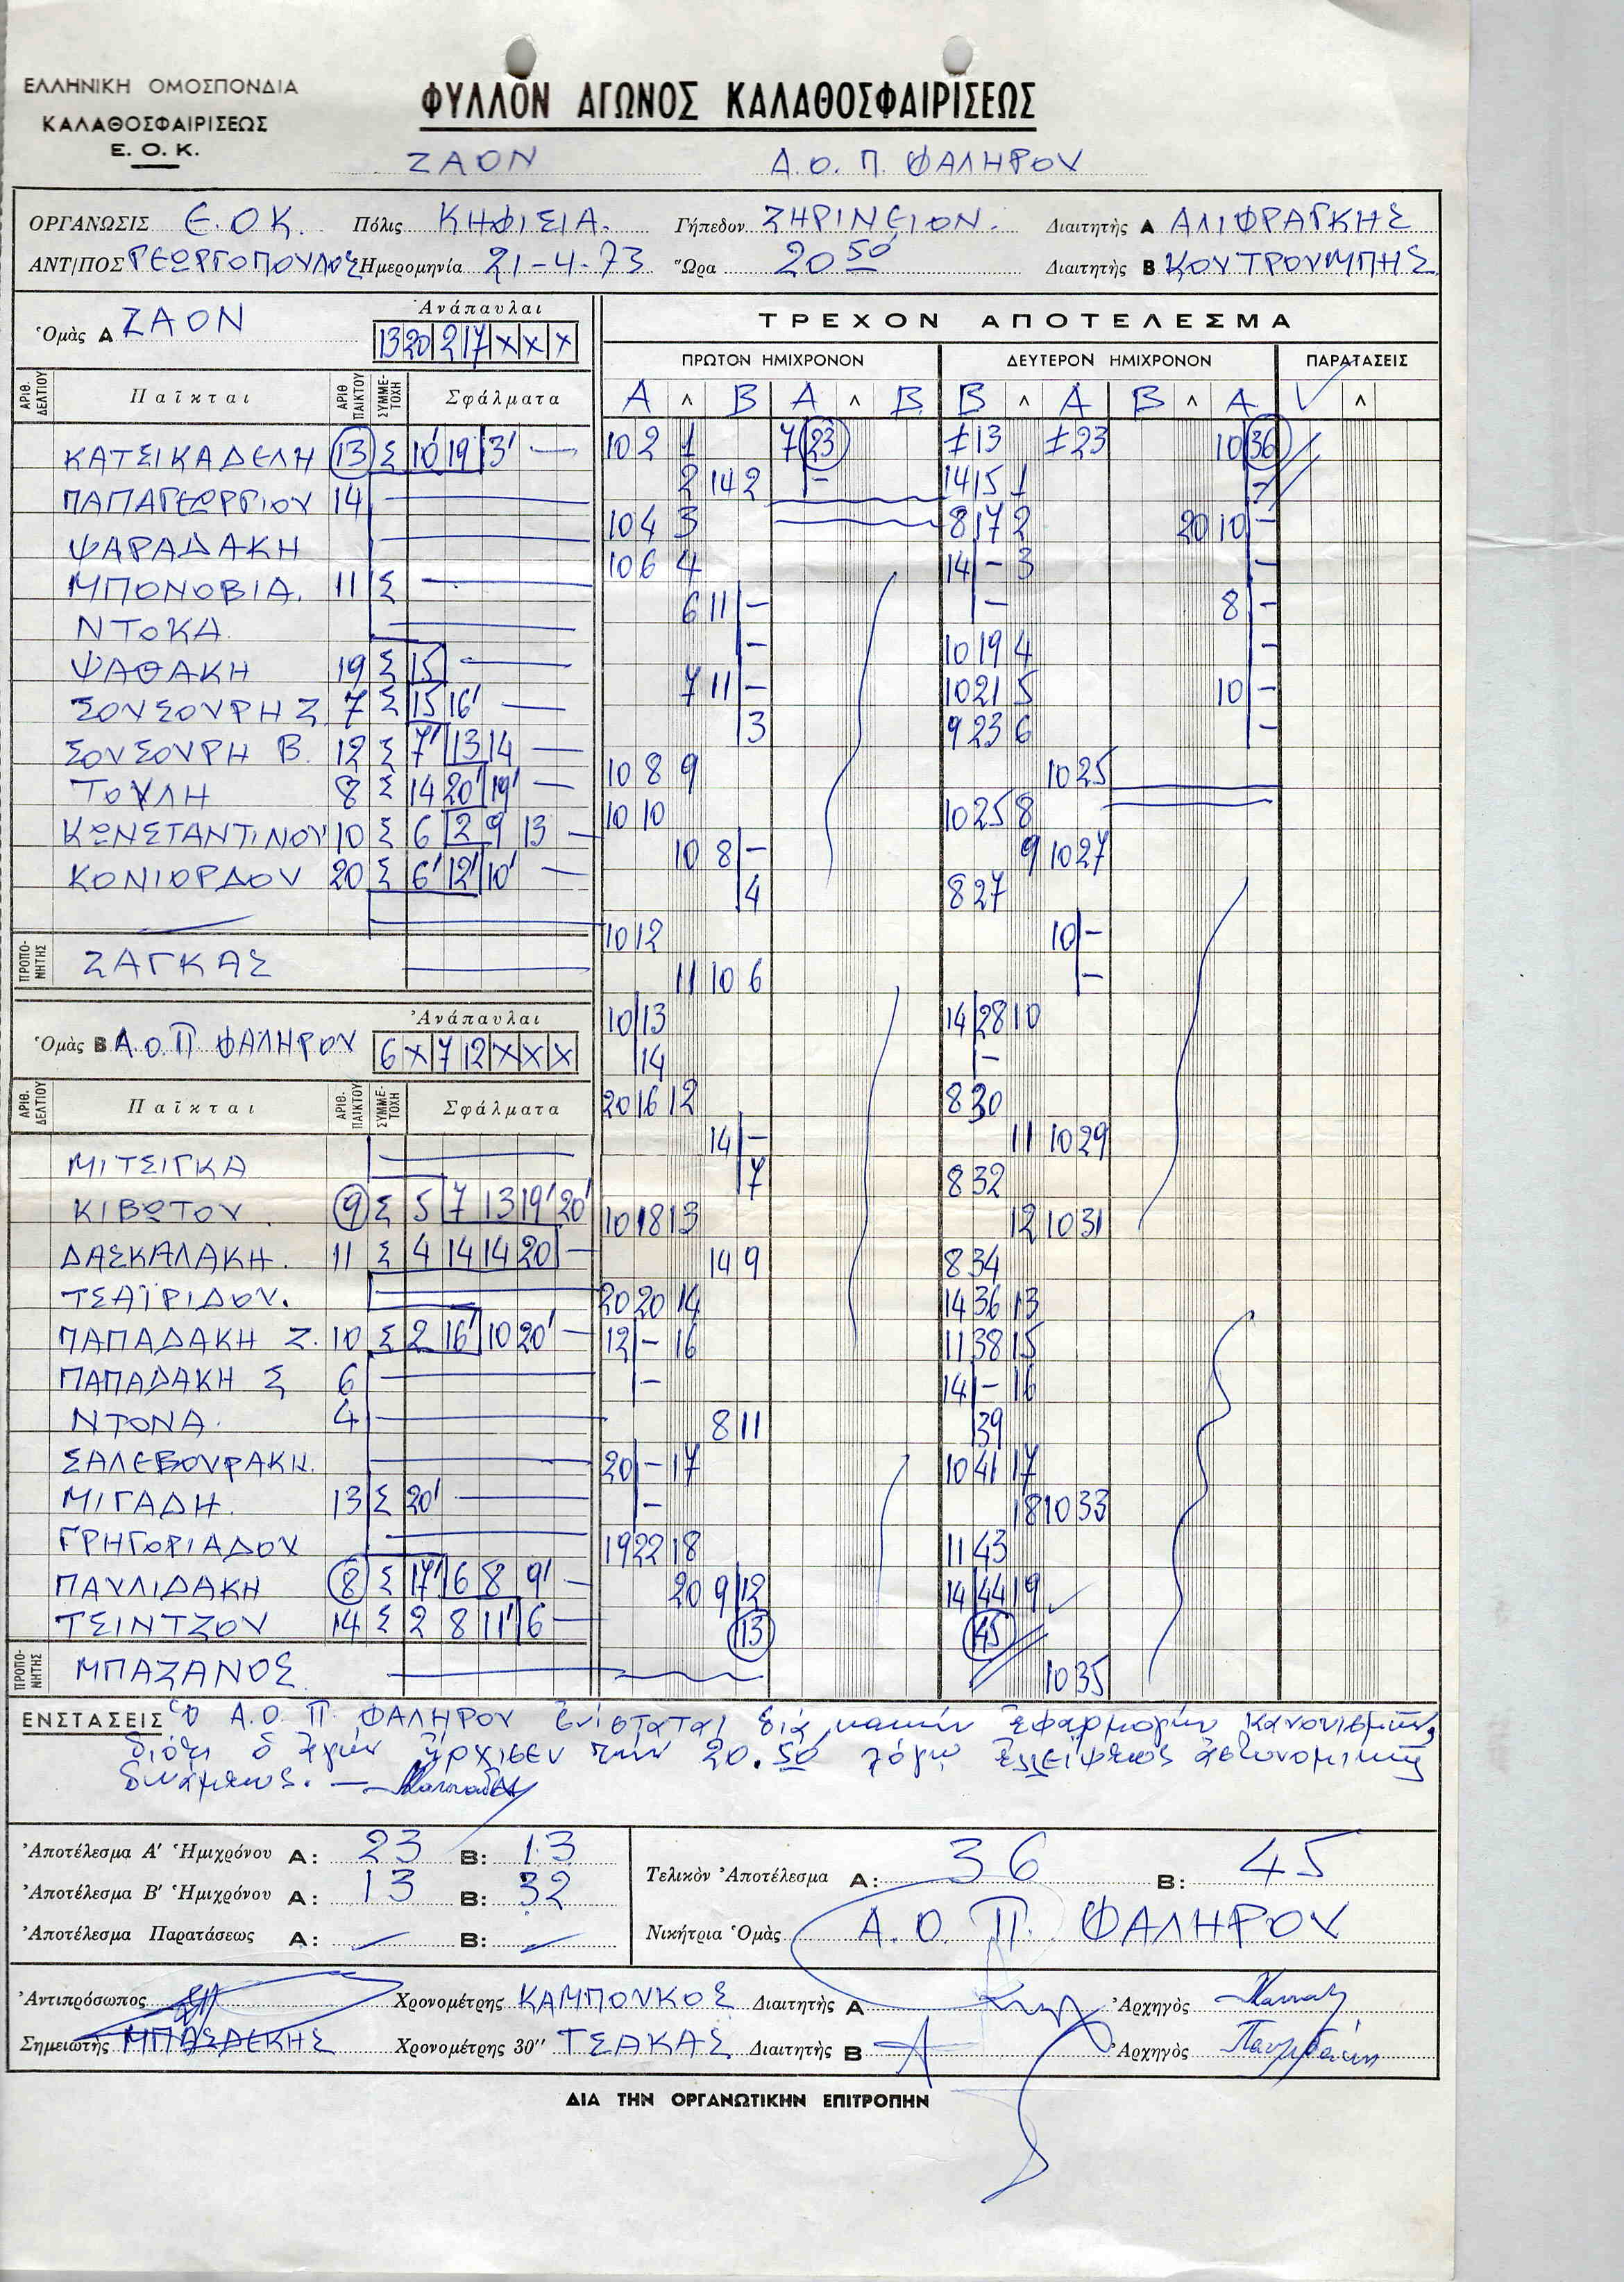 ΕΛΛΗΝΙΚΗ ΟΜΟΣΠΟΝΔΙΑ
ΚΑΛΑΘΟΣΦΑΙΡΙΣΕΩΣ
Ε. Ο. Κ.
ΦΥΛΛΟΝ ΑΓΩΝΟΣ ΚΑΛΑΘΟΣΦΑΙΡΙΣΕΩΣ
ΖΑΟΝ Α.Ο.Π. ΦΑΛΗΡΟΥ
ΟΡΓΑΝΩΣΙΣ Ε.Ο.Κ. Πόλις ΚΗΦΙΣΙΑ. Γήπεδον ΖΗΡΙΝΕΙΟΝ. Διαιτητὴς Α ΑΛΙΦΡΑΓΚΗΣ
ΑΝΤ/ΠΟΣ ΓΕΩΡΓΟΠΟΥΛΟΣ Ἡμερομηνία 21-4-73 Ὥρα 20 50 Διαιτητὴς Β ΚΟΥΤΡΟΥΜΠΗΣ
Ὁμὰς Α ΖΑΟΝ Ἀνάπαυλαι
13 20 2 17 x x x
ΤΡΕΧΟΝ ΑΠΟΤΕΛΕΣΜΑ
ΠΡΩΤΟΝ ΗΜΙΧΡΟΝΟΝ ΔΕΥΤΕΡΟΝ ΗΜΙΧΡΟΝΟΝ ΠΑΡΑΤΑΣΕΙΣ
ΑΡΙΘ. ΔΕΛΤΙΟΥ Παῖκται ΑΡΙΘ ΠΑΙΚΤΟΥ ΣΥΜΜΕΤΟΧΗ Σφάλματα
Α Λ Β Α Λ Β Β Λ Α Β Λ Α Λ
ΚΑΤΣΙΚΑΔΕΛΗ 13 Σ 10' 19 3' —
ΠΑΠΑΓΕΩΡΓΙΟΥ 14
ΨΑΡΑΔΑΚΗ
ΜΠΟΝΟΒΙΑ. 11 Σ —
ΝΤΟΚΑ
ΨΑΘΑΚΗ 19 Σ 15 —
ΣΟΥΣΟΥΡΗ Ζ. 7 Σ 15 16' —
ΣΟΥΣΟΥΡΗ Β. 12 Σ 7' 13 14 —
ΤΟΥΛΗ 8 Σ 14 20' 19' —
ΚΩΝΣΤΑΝΤΙΝΟΥ 10 Σ 6 2 9 13 —
ΚΟΝΙΟΡΔΟΥ 20 Σ 6' 12' 10' —
ΠΡΟΠΟΝΗΤΗΣ ΖΑΓΚΑΣ
Ὁμὰς Β Α.Ο.Π ΦΑΛΗΡΟΥ Ἀνάπαυλαι
6 x 7 12 x x x
ΑΡΙΘ. ΔΕΛΤΙΟΥ Παῖκται ΑΡΙΘ. ΠΑΙΚΤΟΥ ΣΥΜΜΕΤΟΧΗ Σφάλματα
ΜΙΤΣΙΓΚΑ
ΚΙΒΩΤΟΥ. 9 Σ 5 7 13 19' 20'
ΔΑΣΚΑΛΑΚΗ. 11 Σ 4 14 14 20 —
ΤΣΑΪΡΙΔΟΥ.
ΠΑΠΑΔΑΚΗ Ζ. 10 Σ 2 16' 10 20' —
ΠΑΠΑΔΑΚΗ Σ 6
ΝΤΟΝΑ. 4
ΣΑΛΕΒΟΥΡΑΚΗ.
ΜΙΓΑΔΗ. 13 Σ 20' —
ΓΡΗΓΟΡΙΑΔΟΥ
ΠΑΥΛΙΔΑΚΗ 8 Σ 17' 6 8 9' —
ΤΣΙΝΤΖΟΥ 14 Σ 2 8 11' 6 —
ΠΡΟΠΟΝΗΤΗΣ ΜΠΑΖΑΝΟΣ
10 2 1 7 23 ± 13 ± 23 10 36
2 14 2 — 14 15 1 —
10 4 3 8 17 2 20 10 —
10 6 4 14 — 3 —
6 11 — — 8 —
— 10 19 4 —
7 11 — 10 21 5 10 —
3 9 23 6 —
10 8 9 10 25
10 10 10 25 8
10 8 — 9 10 27
4 8 27
10 12 10 —
11 10 6 —
10 13 14 28 10
14 —
20 16 12 8 30
14 — 11 10 29
7 8 32
10 18 13 12 10 31
14 9 8 34
20 20 14 14 36 13
12 — 16 11 38 15
— 14 — 16
8 11 39
20 — 17 10 41 17
— 18 10 33
19 22 18 11 43
20 9 12 14 44 19
13 45
10 35
ΕΝΣΤΑΣΕΙΣ Ὁ Α.Ο.Π. ΦΑΛΗΡΟΥ ἐνίσταται διὰ κακὴν ἐφαρμογὴν κανονισμῶν,
διότι ὁ ἀγὼν ἤρχισεν τὴν 20.50 λόγῳ ἐλλείψεως ἀστυνομικῆς
δυνάμεως. —
Ἀποτέλεσμα Α' Ἡμιχρόνου Α: 23 Β: 13
Ἀποτέλεσμα Β' Ἡμιχρόνου Α: 13 Β: 32
Ἀποτέλεσμα Παρατάσεως Α: — Β: —
Τελικὸν Ἀποτέλεσμα Α: 36 Β: 45
Νικήτρια Ὁμὰς Α.Ο.Π. ΦΑΛΗΡΟΥ
Ἀντιπρόσωπος Χρονομέτρης ΚΑΜΠΟΥΚΟΣ Διαιτητὴς Α Ἀρχηγὸς
Σημειωτὴς ΜΠΑΣΔΕΚΗΣ Χρονομέτρης 30" ΤΣΑΚΑΣ Διαιτητὴς Β Ἀρχηγὸς
ΔΙΑ ΤΗΝ ΟΡΓΑΝΩΤΙΚΗΝ ΕΠΙΤΡΟΠΗΝ